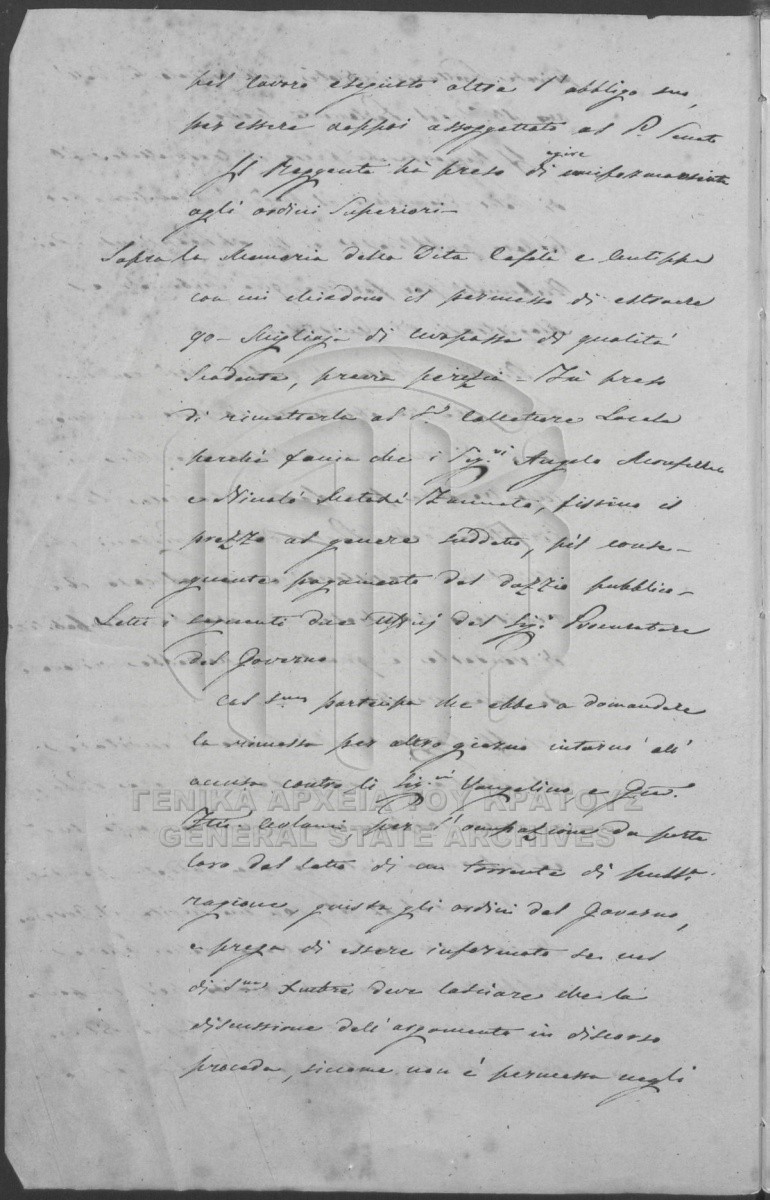 pel lavoro eseguito oltre l'obbligo suo,
per essere doppoi assoggettato al P. Senato
Il Reggente ha preso di agire uniformemente
agli ordini Superiori -
Sopra la Memoria della Dita Cafali e
con cui chiedono il permesso di estraere
90 - Migliaja di uvapassa di qualità
Scadente, previa perizia - Hà preso
di rimetterla al S.r Collettore Locale
perché faccia che i Sig.ri Angelo
e Nicolò Zannetti, fissino il
prezzo al genere suddetto, pel conse-
guente pagamento del dazzio pubblico -
Letti i seguenti due Ufficj del Sig.r Procuratore
del Governo
Col p.mo partecipa che ebbe a domandare
la rimessa per altro giorno intorno all'
accusa contro li Sig.ri Vangelino e
per l'occupazione da parte
loro del letto di un torrente di pubb.ca
ragione, giusta gli ordini del Governo,
e prega di essere informato se nel
di deve lasciare che la
discussione dell'argomento in discorso
proceda, siccome non è permesso negli
ΓΕΝΙΚΑ ΑΡΧΕΙΑ ΤΟΥ ΚΡΑΤΟΥΣ
GENERAL STATE ARCHIVES